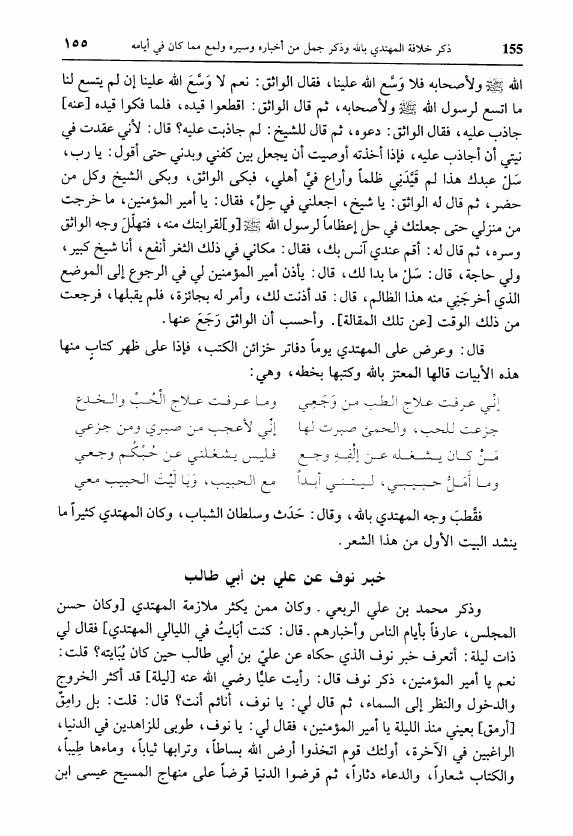 155 ذكر خلافة المهتدي بالله وذكر جمل من أخباره وسيره ولمع مما كان في أيامه ١٥٥
الله ﷺ ولأصحابه فلا وَسَّع الله علينا، فقال الواثق: نعم لا وَسَّعَ الله علينا إن لم يتسع لنا
ما اتسع لرسول الله ﷺ ولأصحابه، ثم قال الواثق: اقطعوا قيده، فلما فكوا قيده [عنه]
جاذب عليه، فقال الواثق: دعوه، ثم قال للشيخ: لم جاذبت عليه؟ قال: لأني عقدت في
نيتي أن أجاذب عليه، فإذا أخذته أوصيت أن يجعل بين كفني وبدني حتى أقول: يا رب،
سَلْ عبدك هذا لم قَيَّدَنِي ظلماً وأراع فيَّ أهلي، فبكى الواثق، وبكى الشيخ وكل من
حضر، ثم قال له الواثق: يا شيخ، اجعلني في حِلٍّ، فقال: يا أمير المؤمنين، ما خرجت
من منزلي حتى جعلتك في حل إعظاماً لرسول الله ﷺ [و]لقرابتك منه، فتهلَّلَ وجه الواثق
وسره، ثم قال له: أقم عندي آنس بك، فقال: مكاني في ذلك الثغر أنفع، أنا شيخ كبير،
ولي حاجة، قال: سَلْ ما بدا لك، قال: يأذن أمير المؤمنين لي في الرجوع إلى الموضع
الذي أخرجَنِي منه هذا الظالم، قال: قد أذنت لك، وأمر له بجائزة، فلم يقبلها، فرجعت
من ذلك الوقت [عن تلك المقالة]. وأحسب أن الواثق رَجَعَ عنها.
قال: وعرض على المهتدي يوماً دفاتر خزائن الكتب، فإذا على ظهر كتابٍ منها
هذه الأبيات قالها المعتز بالله وكتبها بخطه، وهي:
إنّي عرفت علاج الطب من وَجَعِي وما عرفت علاج الْحُبِّ والخدع
جزعت للحب، والحمىٰ صبرت لها إنّي لأعجب من صبري ومن جزعي
مَنْ كان يشغله عن إلْفِهِ وجع فليس يشغلني عن حُبّكُم وجعي
وما أمَلُّ حبيبي، ليتني أبداً مع الحبيب، وَيَا لَيْتَ الحبيب معي
فقُطبَ وجه المهتدي بالله، وقال: حَدَث وسلطان الشباب، وكان المهتدي كثيراً ما
ينشد البيت الأول من هذا الشعر.
خبر نوف عن علي بن أبي طالب
وذكر محمد بن علي الربعي. وكان ممن يكثر ملازمة المهتدي [وكان حسن
المجلس، عارفاً بأيام الناس وأخبارهم. قال: كنت أبَايتُ في الليالي المهتدي] فقال لي
ذات ليلة: أتعرف خبر نوف الذي حكاه عن عليّ بن أبي طالب حين كان يُبَايته؟ قلت:
نعم يا أمير المؤمنين، ذكر نوف قال: رأيت عليًّا رضي الله عنه [ليلة] قد أكثر الخروج
والدخول والنظر إلى السماء، ثم قال لي: يا نوف، أنائم أنت؟ قال: قلت: بل رامِقٌ
[أرمق] بعيني منذ الليلة يا أمير المؤمنين، فقال لي: يا نوف، طوبى للزاهدين في الدنيا،
الراغبين في الآخرة، أولئك قوم اتخذوا أرض الله بساطاً، وترابها ثياباً، وماءها طِيباً،
والكتاب شعاراً، والدعاء دثاراً، ثم قرضوا الدنيا قرضاً على منهاج المسيح عيسى ابن